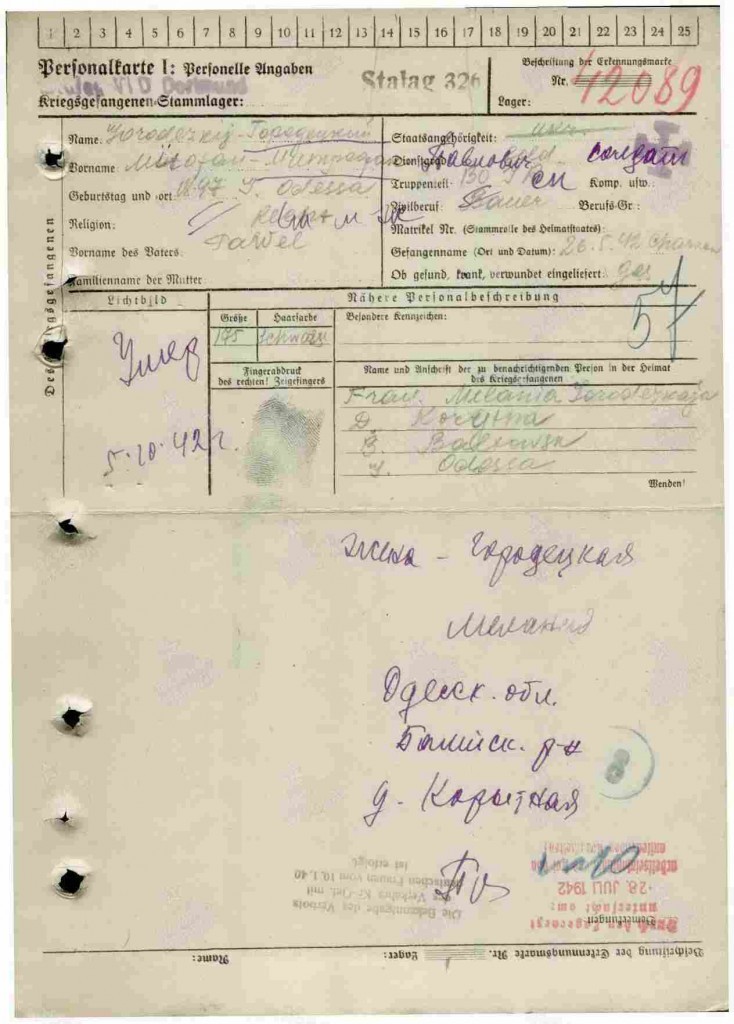 1 2 3 4 5 6 7 8 9 10 11 12 13 14 15 16 17 18 19 20 21 22 23 24 25
Personalkarte I: Personelle Angaben
Stalag VI D Dortmund
Kriegsgefangenen-Stammlager:
Stalag 326
Beschriftung der Erkennungsmarke
Nr. 42089
Lager:
Des Kriegsgefangenen
Name: Gorodezkij-Городецкий
Vorname: Митрофан Павлович
Geburtstag und -ort: Odessa
Religion:
Vorname des Vaters: Pawel
Familienname der Mutter:
Staatsangehörigkeit:
Dienstgrad: Sold. солдат
Truppenteil: 130 Komp. usw.:
Zivilberuf: Bauer Berufs-Gr.:
Matrikel Nr. (Stammrolle des Heimatstaates):
Gefangennahme (Ort und Datum): 26.5.42
Ob gesund, krank, verwundet eingeliefert: ges
Lichtbild
Умер
5.10.42 г.
Nähere Personalbeschreibung
Größe Haarfarbe
175 schwarz
Besondere Kennzeichen:
57
Fingerabdruck
des rechten! Zeigefingers
Name und Anschrift der zu benachrichtigenden Person in der Heimat
des Kriegsgefangenen
Frau Melania Gorodezkaja
D. Korytna
Odessa
Wenden!
жена - Городецкая
Мелания
Одесск. обл.
д. Корытная
8
Die Bekanntgabe des Verbots
des Verkehrs Kr.-Gef. mit
deutschen Frauen vom 10.1.40
ist erfolgt
Bemerkungen:
Durch den Lagerarzt
untersucht am:
26. JULI 1942
Beschriftung der Erkennungsmarke Nr.
Lager:
Name: